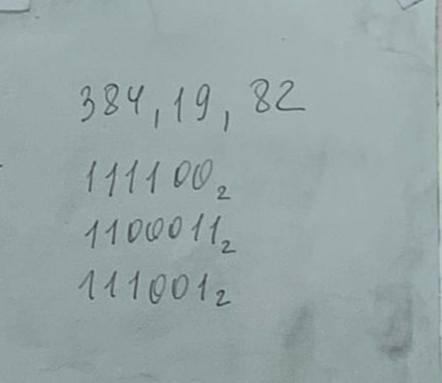 384, 19, 82
111100₂
1100011₂
111001₂